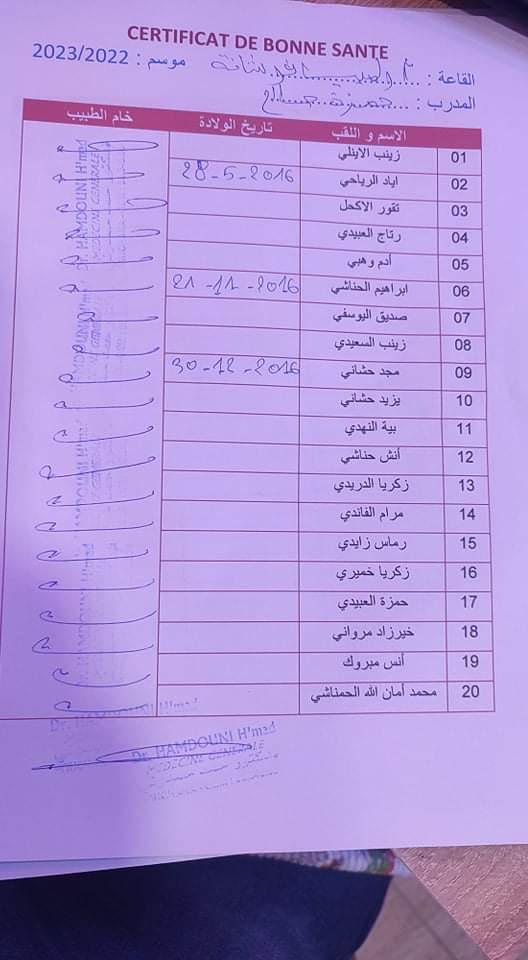 CERTIFICAT DE BONNE SANTE
القاعة : موسم : 2023/2022
المدرب :
الاسم و اللقب تاريخ الولادة خام الطبيب
01 زينب الاينلي
02 اياد الرياحي 28-5-2016
03 تقور الاكحل
04 رتاج العبيدي
05 أدم وهبي
06 ابراهيم الحناشي 21-11-2016
07 صديق اليوسفي
08 زينب السعيدي
09 مجد حشاني 30-12-2016
10 يزيد حشاني
11 بية النهدي
12 أنش حناشي
13 زكريا الدريدي
14 مرام الفاندي
15 رماس زايدي
16 زكريا خميري
17 حمزة العبيدي
18 خيرزاد مرواني
19 أنس مبروك
20 محمد أمان الله الحمناشي
Dr. HAMDOUNI H'med
Dr. HAMDOUNI H'med
MEDECINE GENERALE